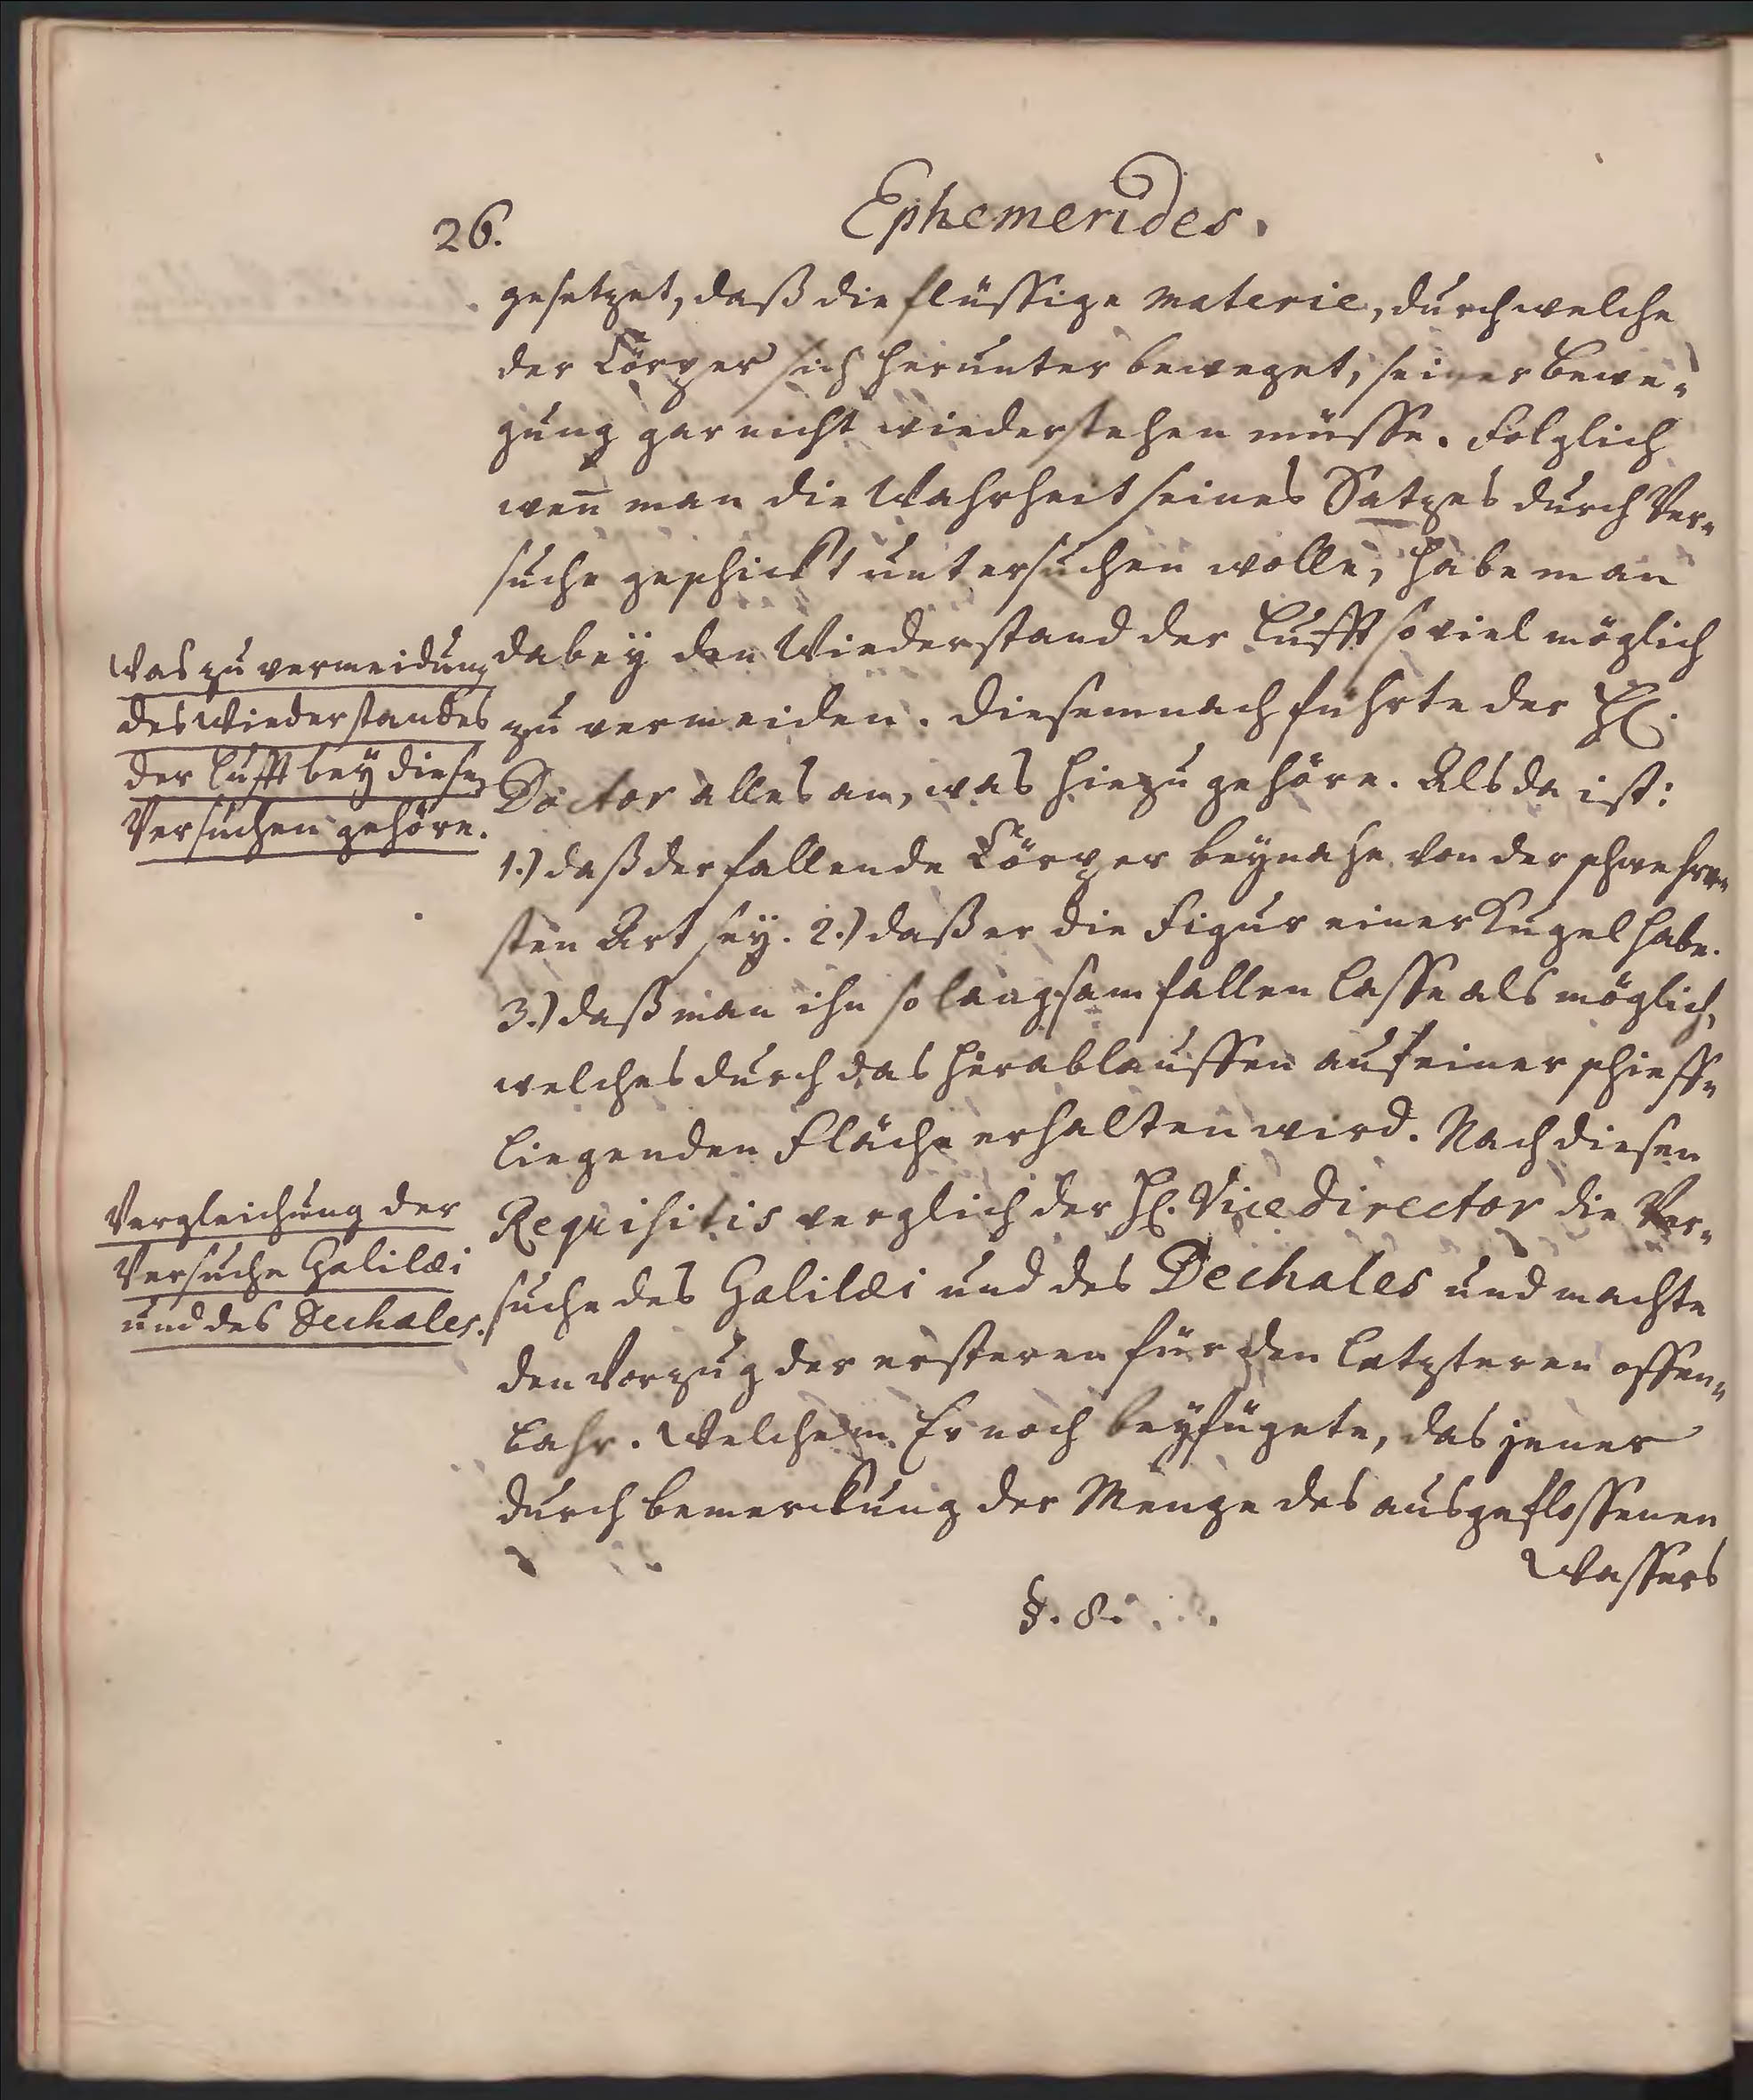 26.
Ephemerides.
gesetzet, daß die flüssige materie, durch welche
der Cörper sich herunter beweget, seiner bewe-
gung gar nicht wiederstehen müsse. Folglich
wen̄ man die Wahrheit seines Satzes durch Ver-
suche geschickt untersuchen wolle, habe man
dabey den Wiederstand der Lufft so viel möglich
zu vermeiden. Diesemnach führte der H.
Doctor alles an, was hiezu gehöre. Als da ist:
1.) daß der fallende Cörper beynahe von der schwehre-
sten Art sey. 2.) daß er die Figur einer Kugel habe.
3.) daß man ihn so langsam fallen lasse als möglich,
welches durch das herablauffen auf einer schieff-
liegenden Fläche erhalten wird. Nach diesen
Requisitis verglich der H. Vice Director die Ver-
suche des Galilæi und des Dechales und machte
den Vorzug der ersteren für den letzteren offen-
bahr. Welchem Er noch beyfügete, das jener
durch bemerckung der Menge des ausgeflossenen
Wassers
§. 8.
Was zu vermeidung
des Wiederstandes
der Lufft bey diesen
Versuchen gehöre.
Vergleichung der
Versuche Galilæi
und des Dechales.